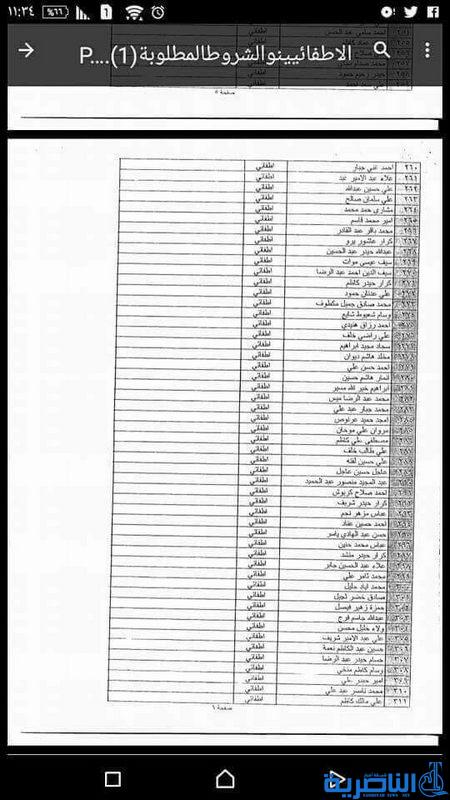 ١١:٣٤
%٦٦
الاطفائيينوالشروطالمطلوبة(1)....P
صفحة ٥
٢٦٠ احمد غني جبار اطفائي
٢٦١ علاء عبد الامير عبد اطفائي
٢٦٢ علي حسين عبدالله اطفائي
٢٦٣ علي سلمان صالح اطفائي
٢٦٤ مشاري حمد محمد اطفائي
٢٦٥ امير محمد قاسم اطفائي
٢٦٦ محمد باقر عبد القادر اطفائي
٢٦٧ كرار عاشور اطفائي
٢٦٨ عبدالله حيدر عبد الحسين اطفائي
٢٦٩ سيف عيسى موات اطفائي
٢٧٠ سيف الدين احمد عبد الرضا اطفائي
٢٧١ كرار حيدر كاظم اطفائي
٢٧٢ علي عدنان حمود اطفائي
٢٧٣ محمد صادق جميل اطفائي
٢٧٤ وسام شعيوط شايع اطفائي
٢٧٥ احمد رزاق هنيدي اطفائي
٢٧٦ علي راضي خلف اطفائي
٢٧٧ سجاد مجيد ابراهيم اطفائي
٢٧٨ مخلد هاشم ديوان اطفائي
٢٧٩ احمد حسن علي اطفائي
٢٨٠ انمار هاشم حسين اطفائي
٢٨١ ابراهيم خير الله اطفائي
٢٨٢ محمد عبد الرضا اطفائي
٢٨٣ محمد جبار عبد علي اطفائي
٢٨٤ امجد حميد اطفائي
٢٨٥ مروان علي موحان اطفائي
٢٨٦ مصطفى علي كاظم اطفائي
٢٨٧ علي طالب خلف اطفائي
٢٨٨ علي حسين لفته اطفائي
٢٨٩ عاجل حسين عاجل اطفائي
٢٩٠ عبد المجيد منصور عبد الحميد اطفائي
٢٩١ احمد صلاح كريوش اطفائي
٢٩٢ كرار حيدر شريف اطفائي
٢٩٣ عباس مزهر نجم اطفائي
٢٩٤ احمد حسين عناد اطفائي
٢٩٥ حسن عبد الهادي ياسر اطفائي
٢٩٦ عباس محمد حنين اطفائي
٢٩٧ كرار حيدر منشد اطفائي
٢٩٨ علاء عبد الحسين جابر اطفائي
٢٩٩ محمد ثامر علي اطفائي
٣٠٠ محمد اياد خليل اطفائي
٣٠١ صادق خضر اطفائي
٣٠٢ حمزة زهير فيصل اطفائي
٣٠٣ عبدالله جاسم فرج اطفائي
٣٠٤ ولاء خليل محسن اطفائي
٣٠٥ علي عبد الامير شريف اطفائي
٣٠٦ حسين عبد الكاظم نعمة اطفائي
٣٠٧ حسام حيدر عبد الرضا اطفائي
٣٠٨ وسام كاظم اطفائي
٣٠٩ امير حيدر علي اطفائي
٣١٠ محمد ناصر عبد علي اطفائي
٣١١ علي مالك كاظم اطفائي
صفحة ٦
شبكة أخبار
الناصرية